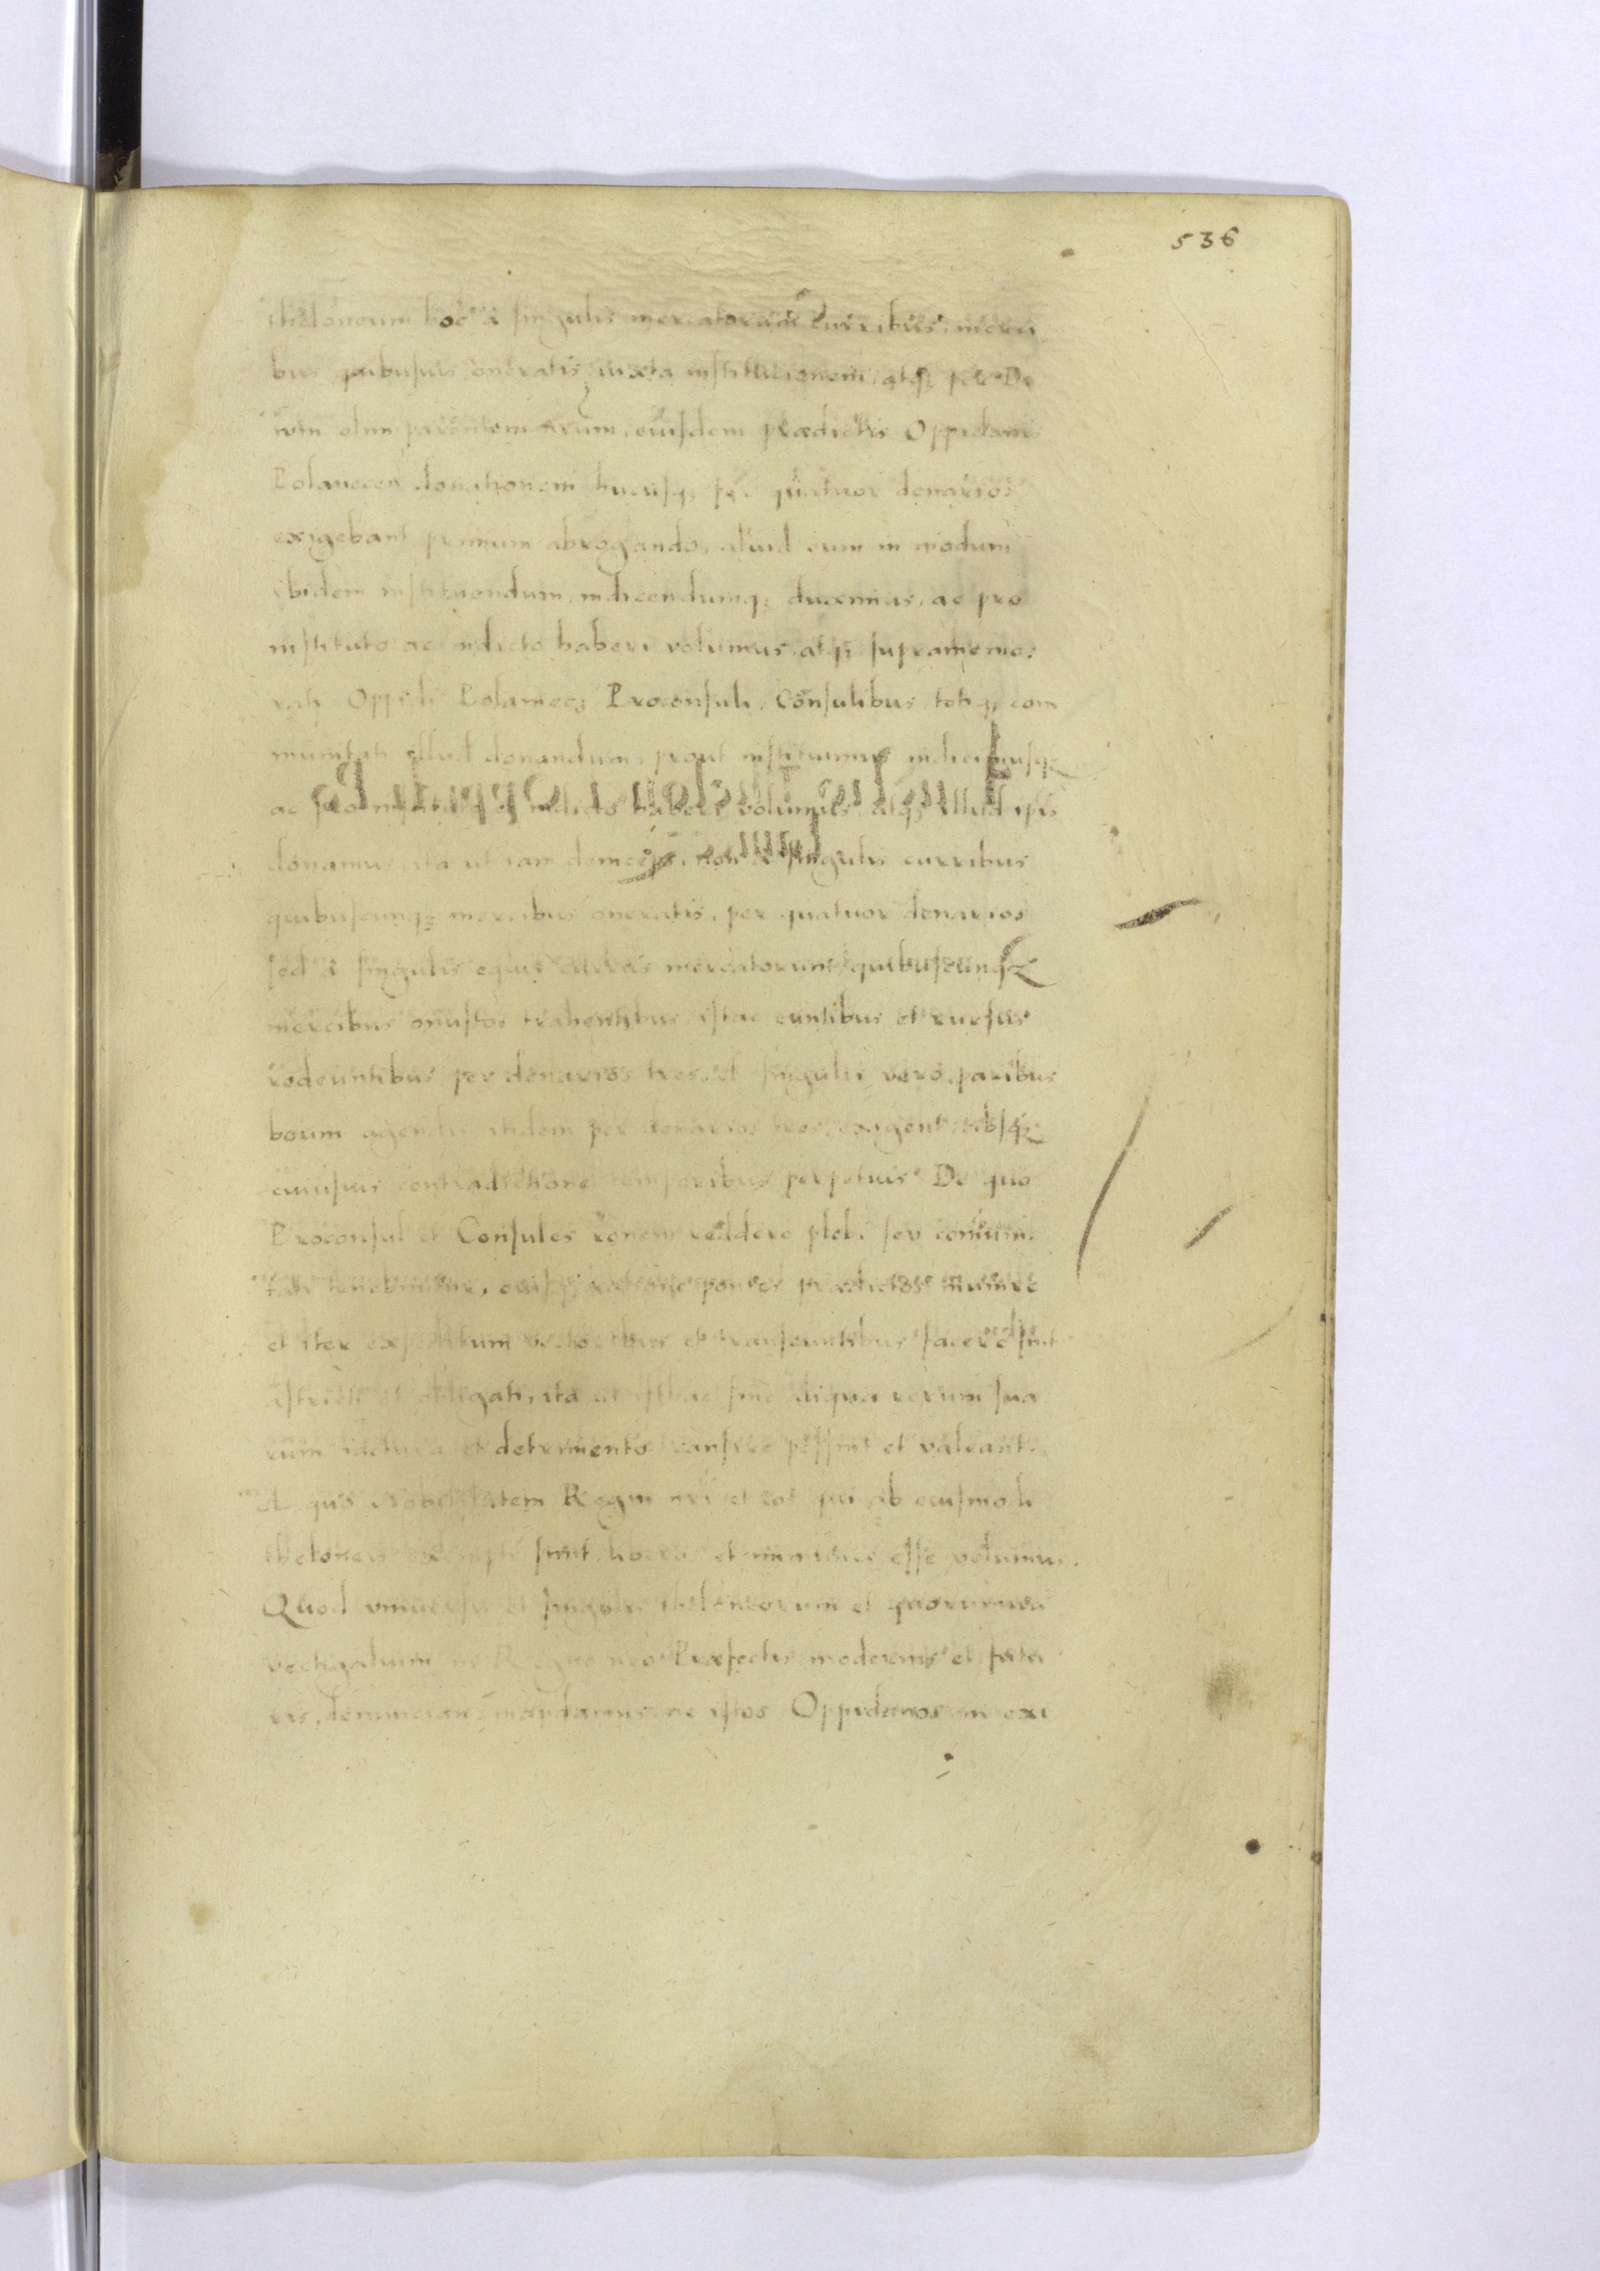 536
theloneum hoc à singulis mercatorum curribus, merci
bus quibusuis oneratis, iuxta institutionem, atq; per Di
uum olim parentem nrum, eiusdem prædictis Oppidanis
Polanecen donationem hucusq; per quatuor denarios
exigebant primum abrogando, aliud eum in modum
ibidem instituendum, indicendumq; duximus, ac pro
instituto ac indicto haberi volumus, atq; supramemo-
rati Oppidi Polaniecz Proconsuli, Consulibus, totiq; com
munitati illud donandum, prout instituimus indicimusq;
ac pro instituto et indicto haberi volumus, atq; illud ipsis
donamus, ita ut iam deinceps, non à singulis curribus
quibuscunq; mercibus oneratis, per quatuor denarios
sed à singulis equis currus mercatorum quibuscunq;
mercibus onustos trahentibus, istac euntibus et rursus
redeuntibus per denarios tres, et singulis vero, paribus
boum agendis itidem per denarios tres, exigent, absq;
cuiusuis contradictione temporibus perpetuis. De quo
Proconsul et Consules ronem reddere plebi seu communi-
tati tenebuntur, eiusq; ratione pontes prædictos munire
et iter expeditum vectoribus et transeuntibus facere sint
astricti et obligati, ita ut isthac sine aliqua rerum sua
rum iactura et detrimento transire possint et valeant.
A quo Nobilitatem Regni nri et eos qui ab eiusmodi
theloneis exempti sunt, liberos et immunes esse volumus.
Quod vniuersis et singulis theloneorum et quorumuis
vectigalium in Regno nro Præfectis modernis et futu
ris, denunctian mandamus ne istos Oppidanos in exi